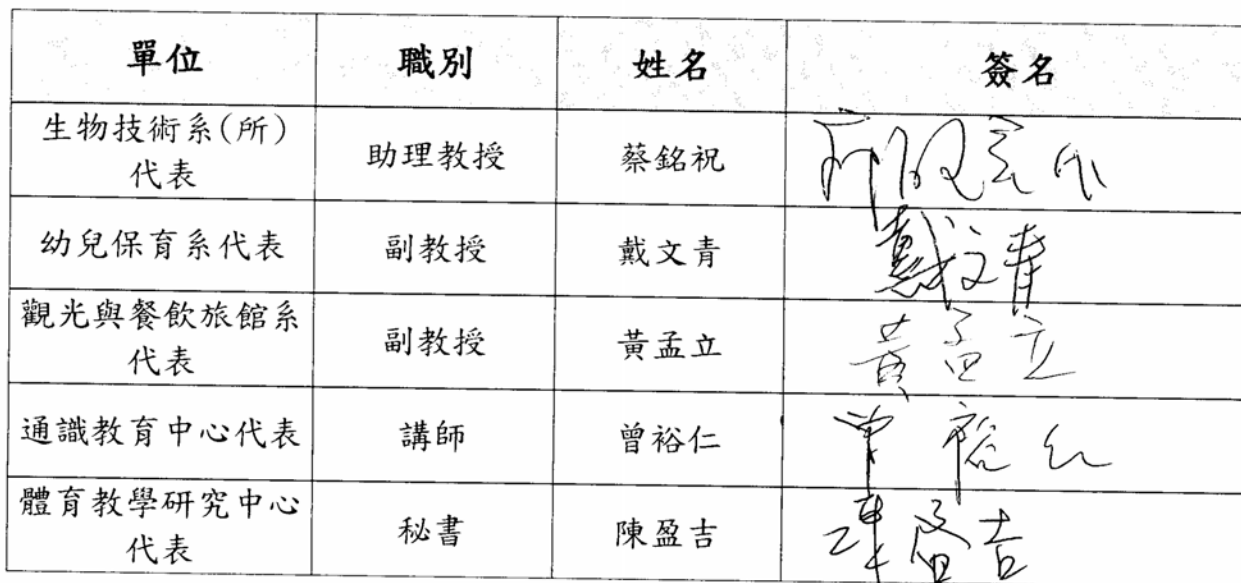 單位 職別 姓名 簽名
生物技術系(所)
代表 助理教授 蔡銘祝
幼兒保育系代表 副教授 戴文青 戴文青
觀光與餐飲旅館系
代表 副教授 黃孟立 黃孟立
通識教育中心代表 講師 曾裕仁 曾裕仁
體育教學研究中心
代表 秘書 陳盈吉 陳盈吉